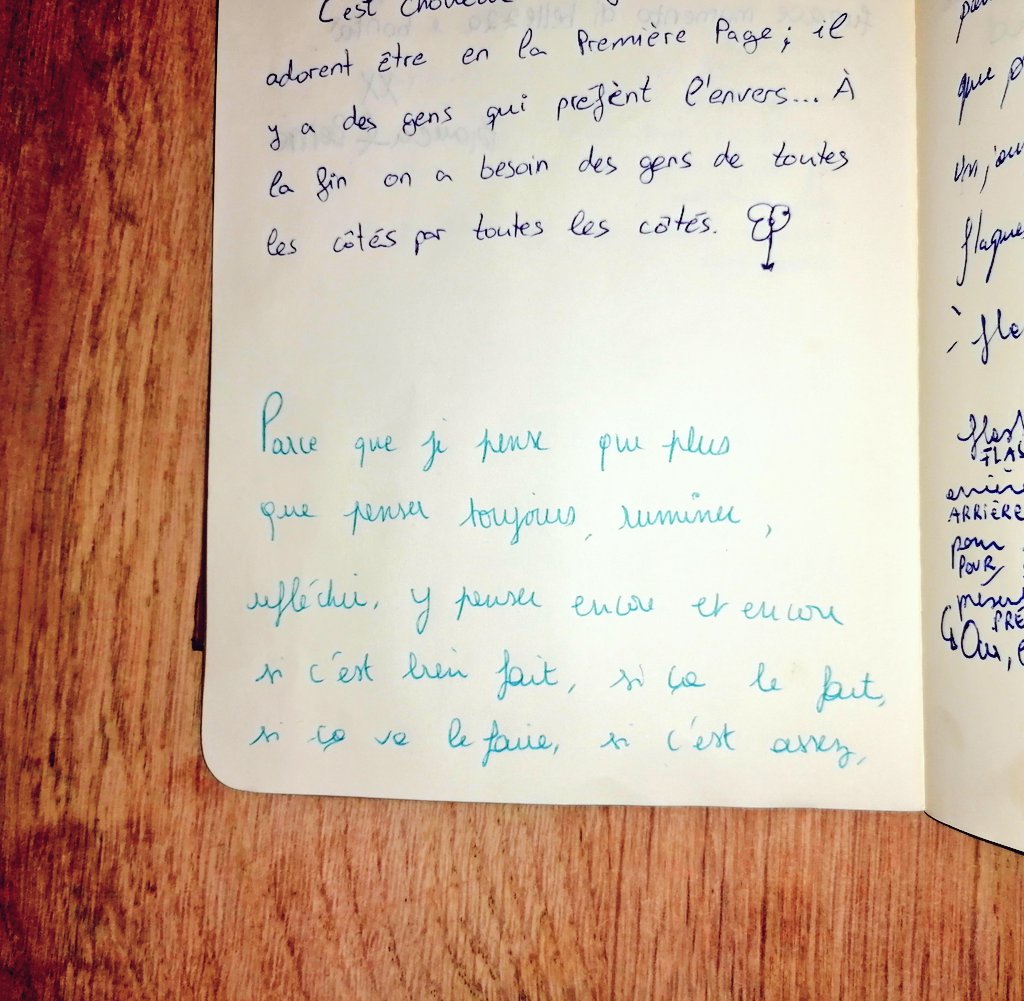 C'est chouette
adorent être en la Première Page; il
y a des gens qui prefènt l'envers... À
la fin on a besoin des gens de toutes
les côtés par toutes les côtés.
Parce que je pense que plus
que penser toujours, ruminer,
refléchir, y penser encore et encore
si c'est bien fait, si ça le fait,
si ça va le faire, si c'est assez,
que
un jour
flaque
à
FLAS
ARRIÈRE
pour
POUR
PRÉ